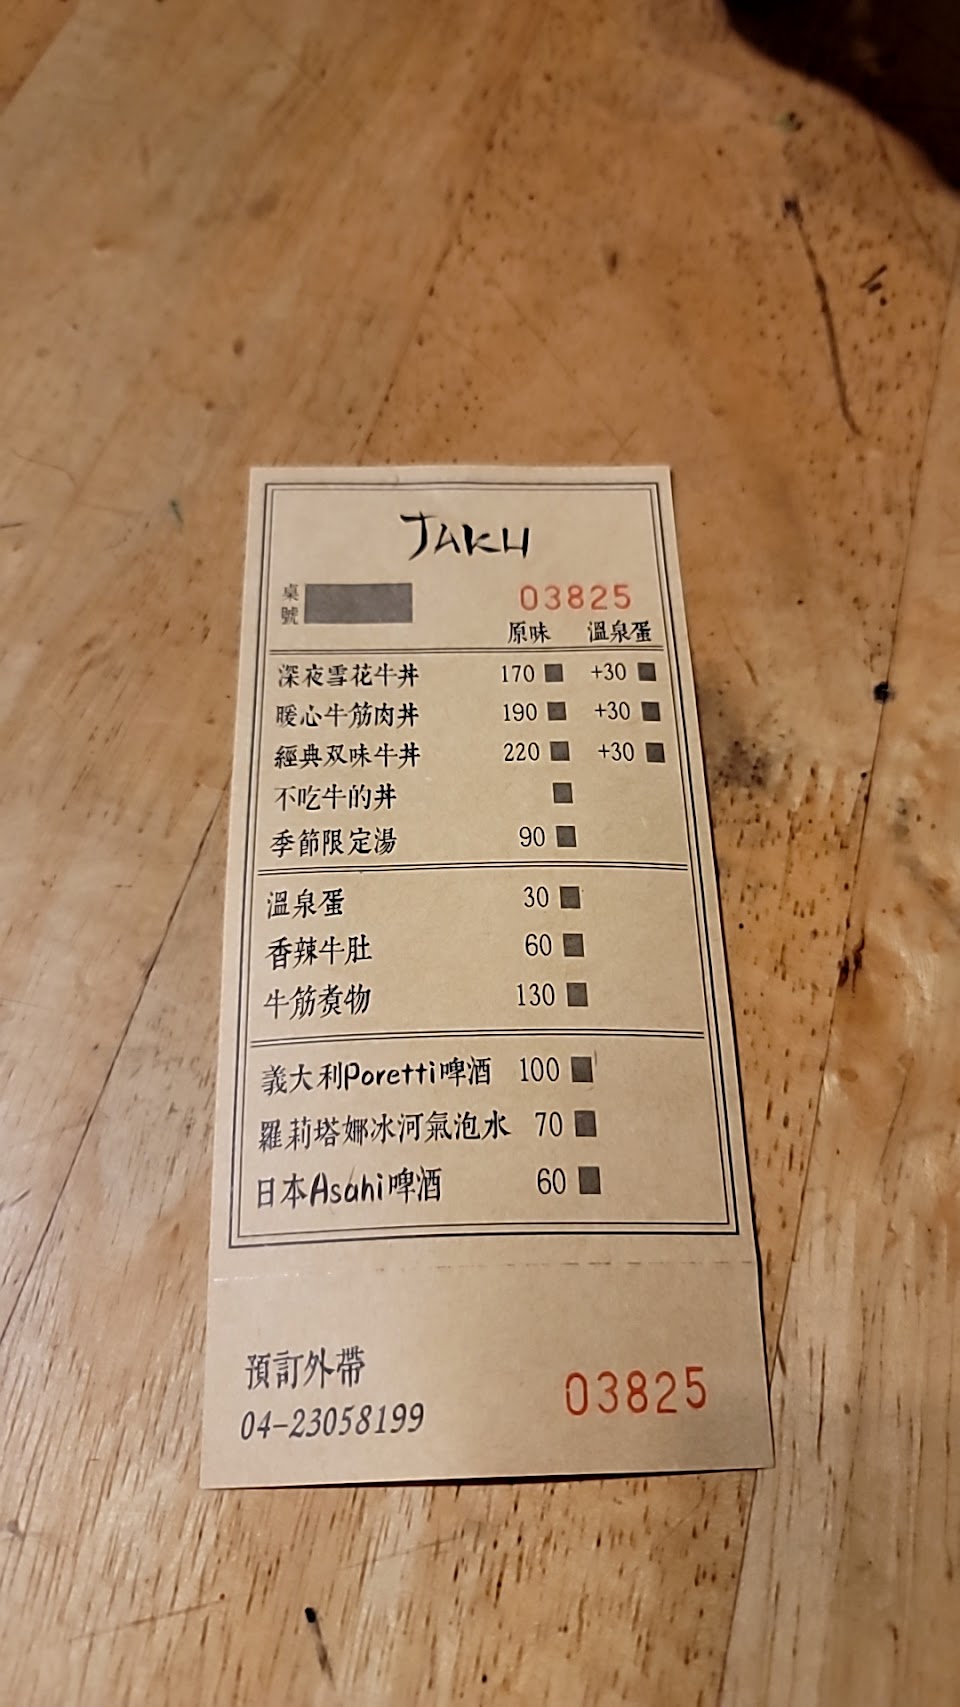 TAKU
桌號 03825
原味 溫泉蛋
深夜雪花牛丼 170 +30
暖心牛筋肉丼 190 +30
經典双味牛丼 220 +30
不吃牛的丼
季節限定湯 90
溫泉蛋 30
香辣牛肚 60
牛筋煮物 130
義大利Poretti啤酒 100
羅莉塔娜冰河氣泡水 70
日本Asahi啤酒 60
預訂外帶
04-23058199 03825